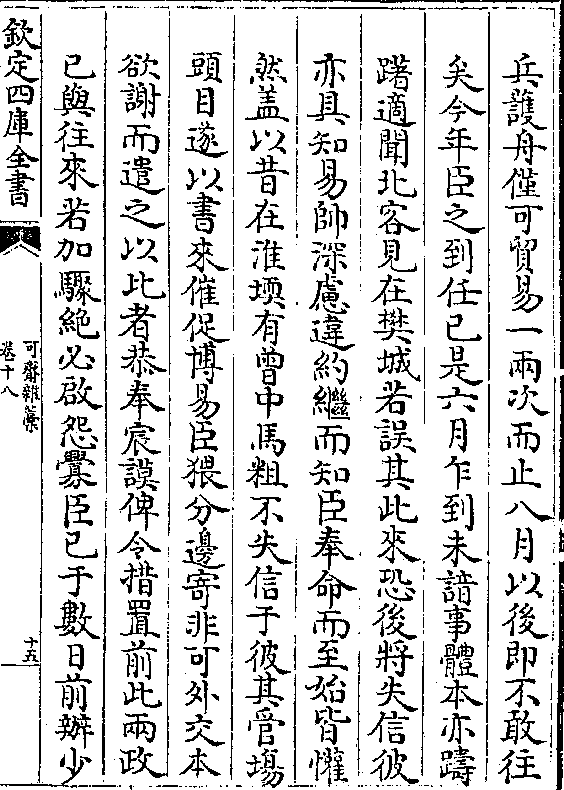 兵䕶舟僅可貿易一兩次而止八月以後即不敢往
矣今年臣之到任已是六月乍到未諳事體本亦躊
躇適聞北客見在樊城若誤其此來恐後將失信彼
亦具知易帥深慮違約繼而知臣奉命而至始皆懽
然盖以昔在淮堧有曾中馬粗不失信于彼其管場
頭目遂以書來催促博易臣猥分邊寄非可外交本
欲謝而遣之以比者恭奉宸謨俾令措置前此兩政
已與往來若加驟絶必啟怨釁臣已于數日前辦少
欽定四庫全書
可齋雜藁
卷十八
十五